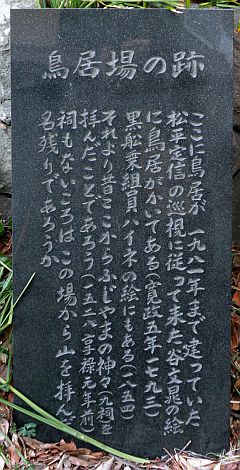 鳥居場の跡
ここに鳥居が一九八二年まで建っていた
松平定信の巡視に従って来た谷文晁の絵
に鳥居がかいてある(寛政五年一七九三)
黒船乗組員ハイネの絵にもある(一八五四)
それより昔ここからふじやまの神々(九祠)を
拝んだことであろう(一五二八享禄元年前)
祠もないころはこの場から山を拝んだ
名残りであろうか